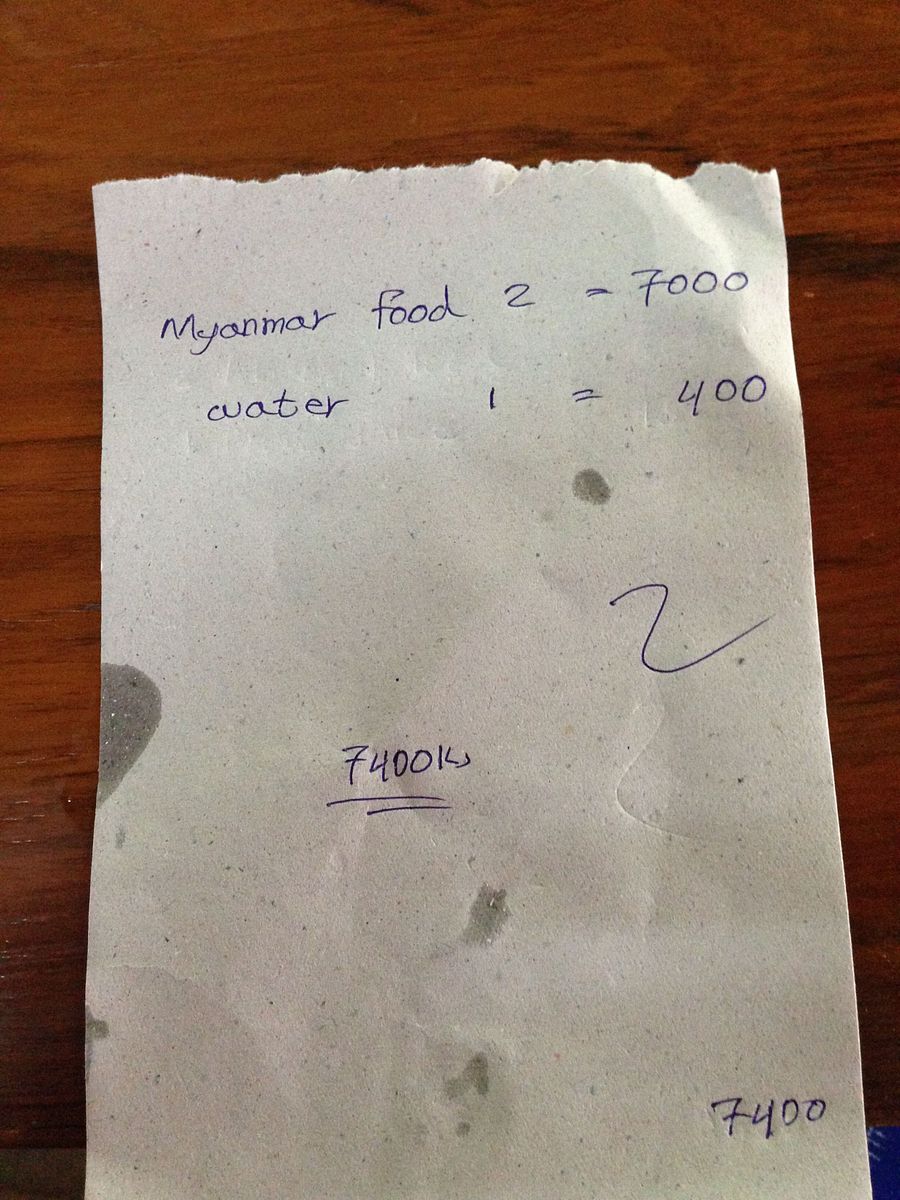 Myanmar food 2 = 7000
water 1 = 400
7400Ks
7400